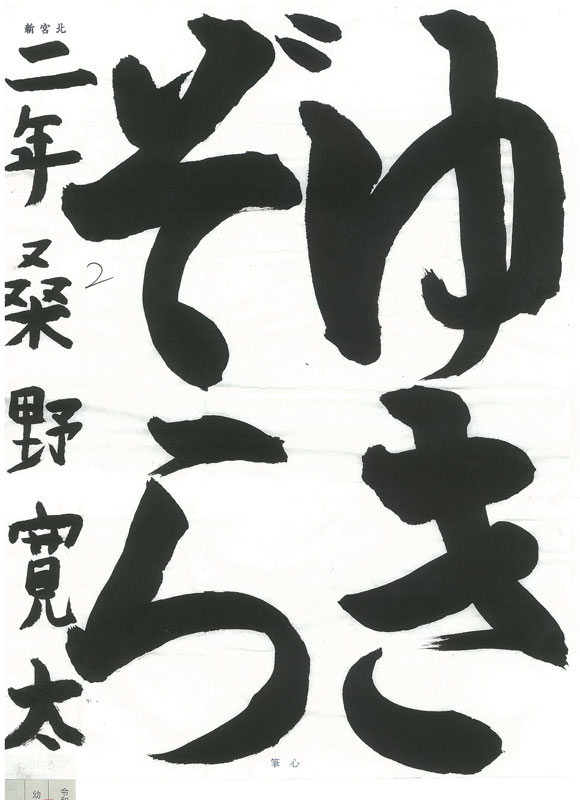 ゆき
ぞら
二年 桑野寛太
2
北宮新
心筆
令和
幼